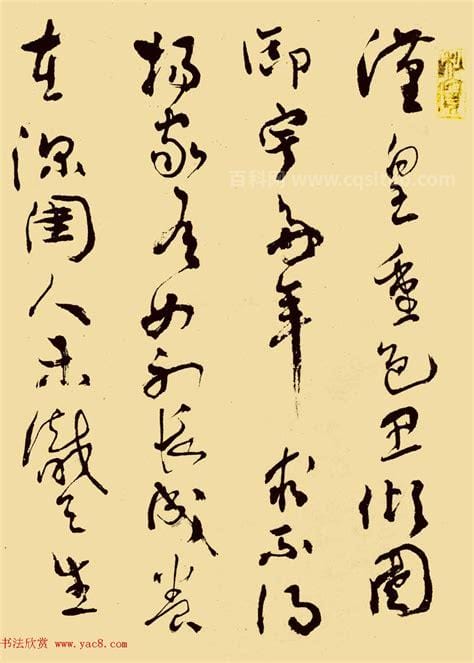 漢皇重色思傾國
御宇多年求不得
楊家有女初長成養
在深閨人未識天生
百科网
书法欣赏 www.yac8.com